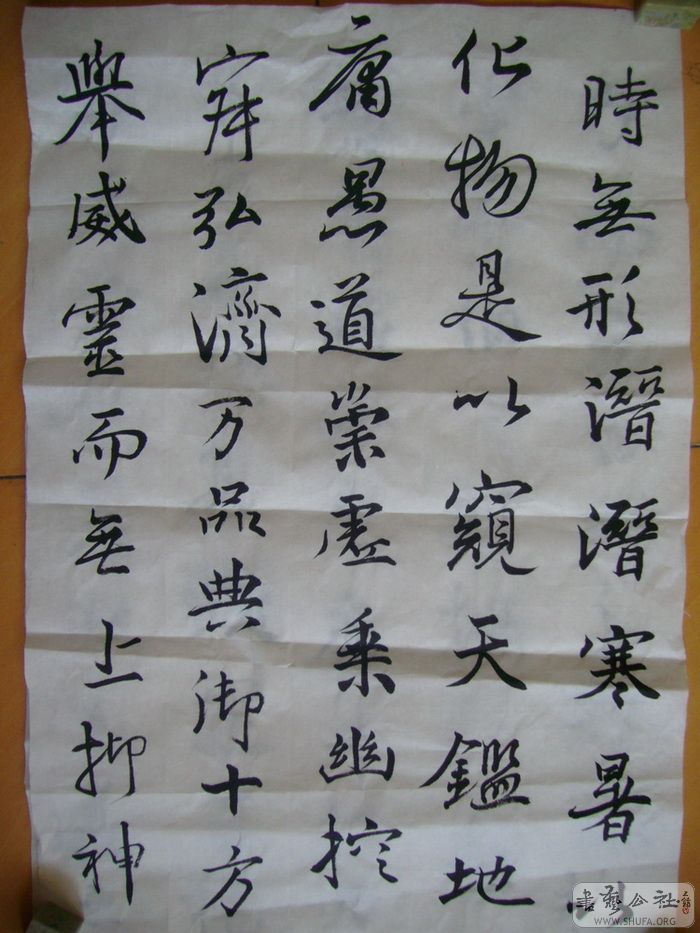 時無形潛潛寒暑以
化物是以窺天鑑地
庸愚道崇虛乘幽控
寂弘濟万品典御十方
舉威靈而無上抑神
書藝公社
WWW.SHUFA.ORG